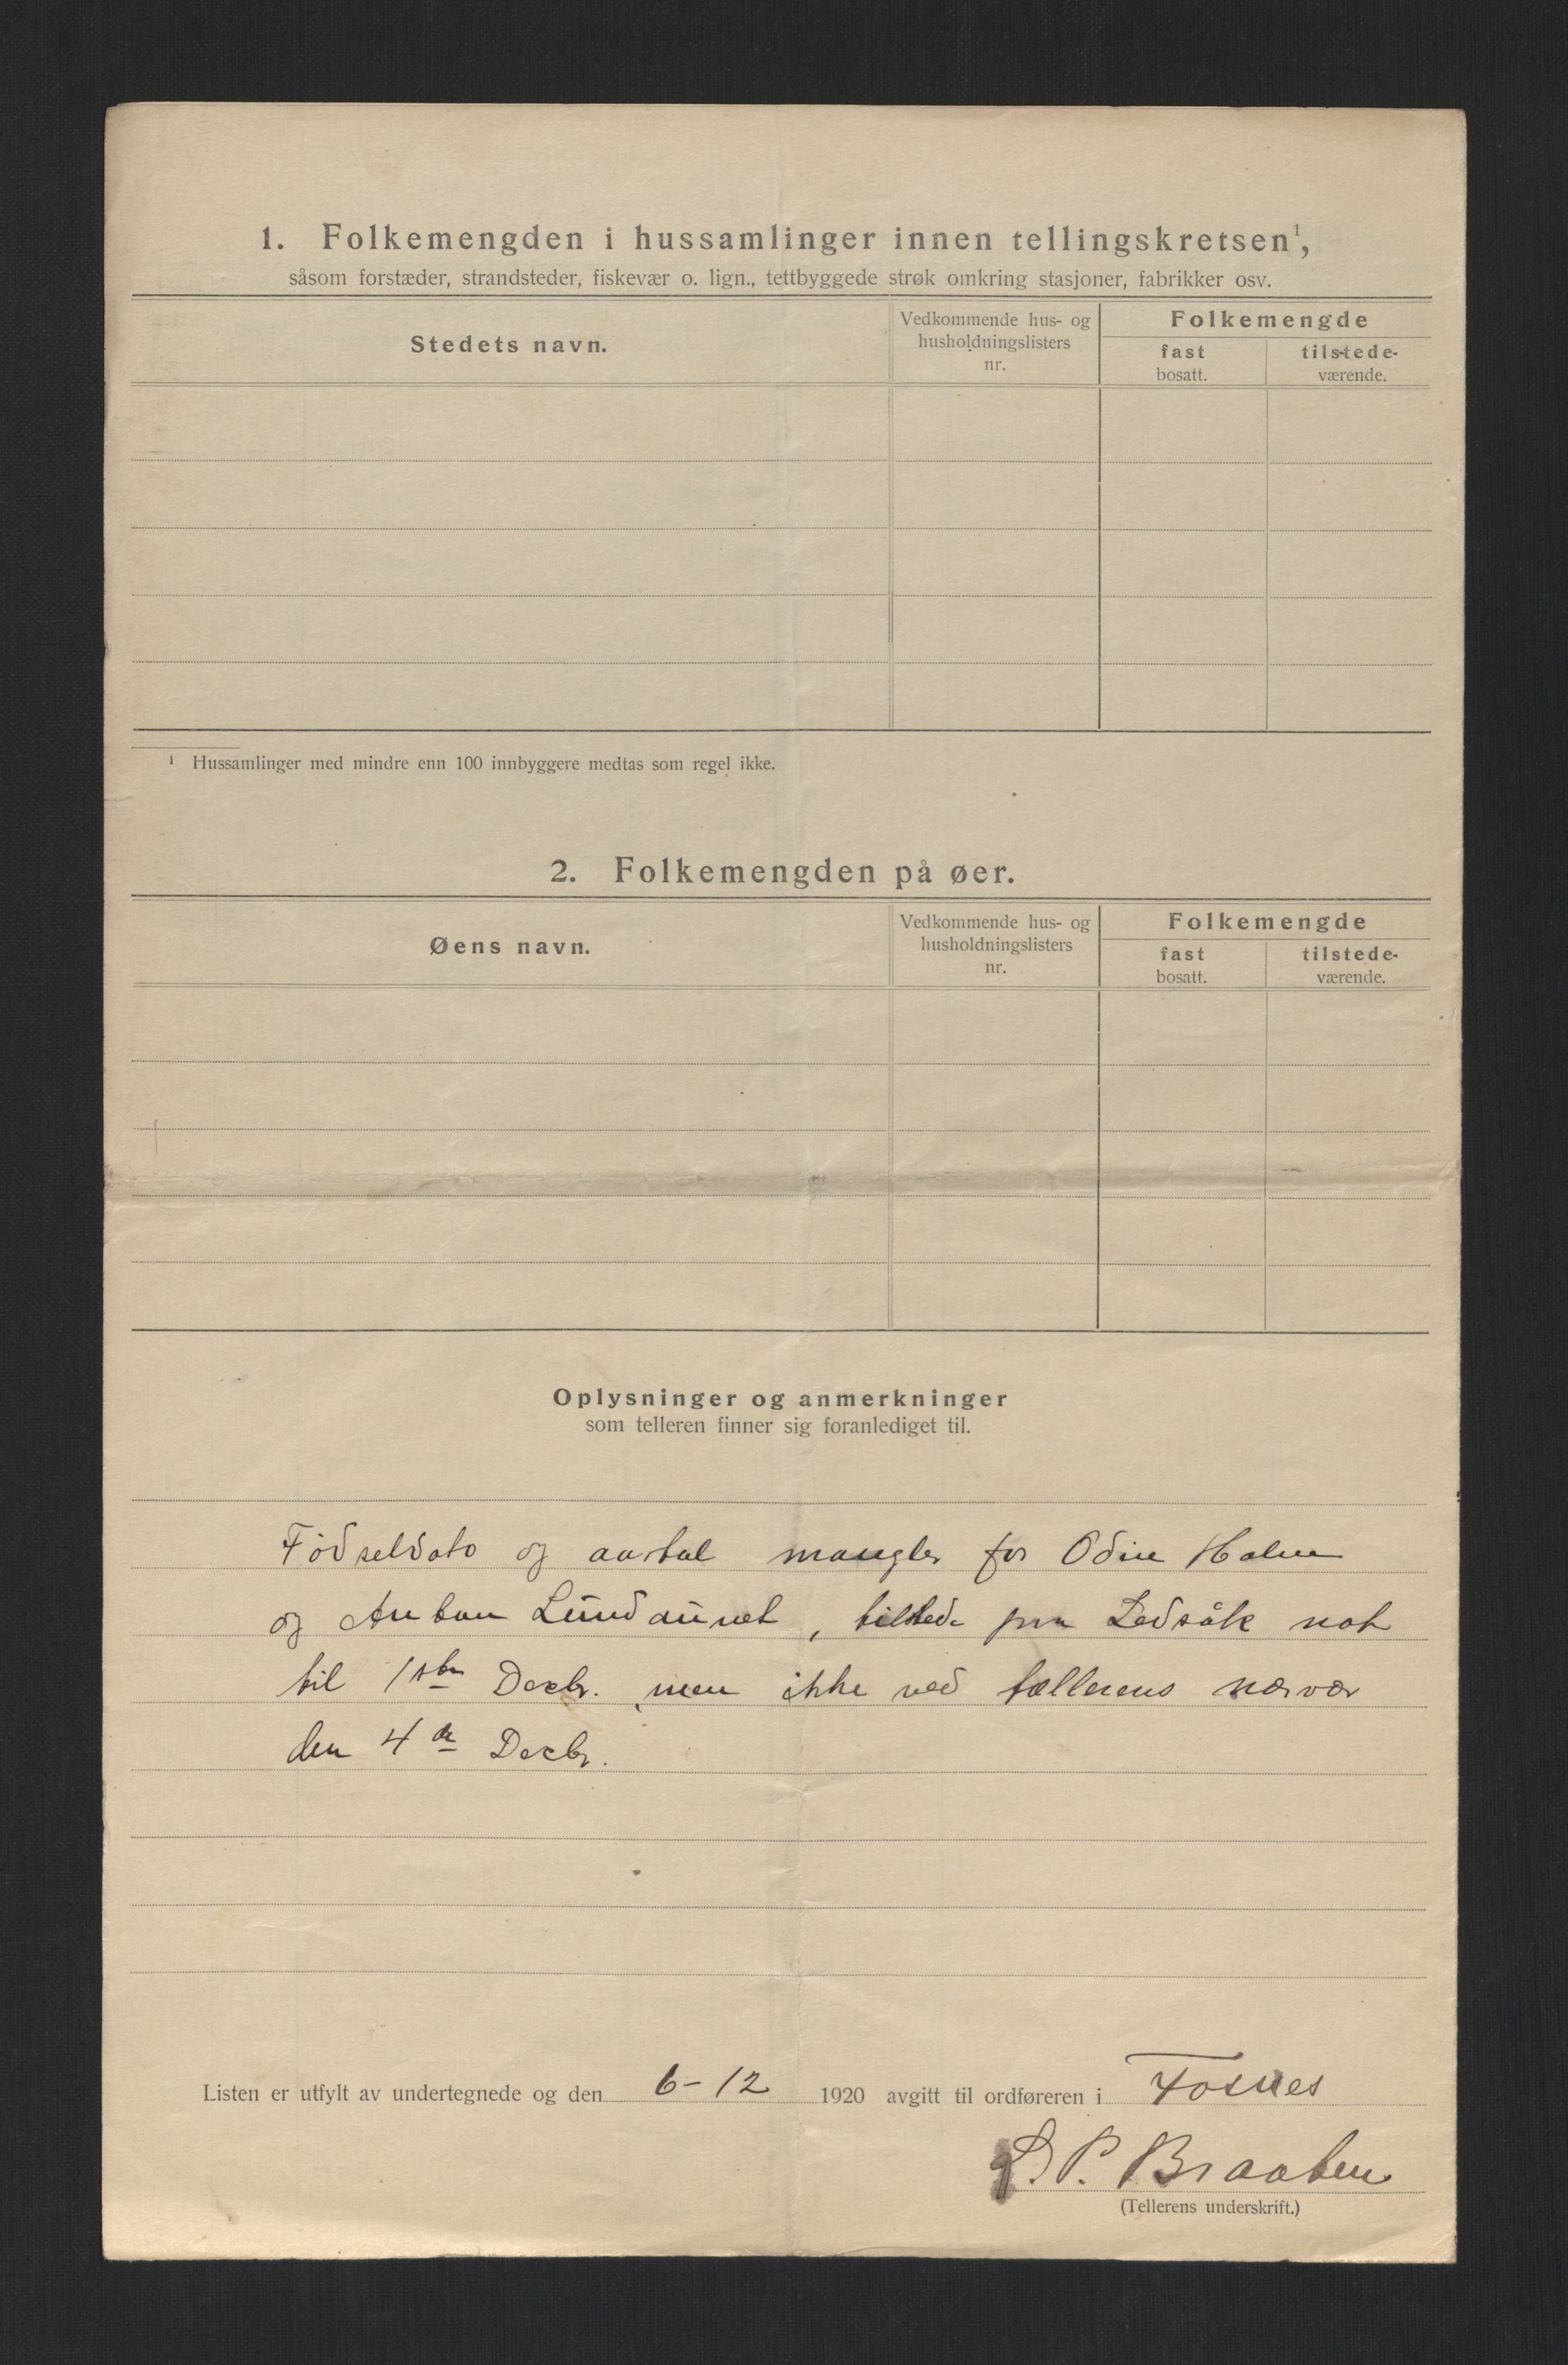 1. Folkemengden i hussamlinger innen tellingskretsen¹,
såsom forstæder, strandsteder, fiskevær o. lign., tettbyggede strøk omkring stasjoner, fabrikker osv.
Stedets navn.
Vedkommende hus- og
husholdningslisters
nr.
Folkemengde
fast
bosatt.
tilstede-
værende.
¹ Hussamlinger med mindre enn 100 innbyggere medtas som regel ikke.
2. Folkemengden på øer.
Øens navn.
Vedkommende hus- og
husholdningslisters
nr.
Folkemengde
fast
bosatt.
tilstede-
værende.
Oplysninger og anmerkninger
som telleren finner sig foranlediget til.
Födseldato og aartal mangler for Odin Holm
og Anton Lundaunet, tilstede paa nat
til 1ste Decbr. men ikke ved tællerens nærvær
den 4de Decbr.
Listen er utfylt av undertegnede og den 6-12 1920 avgitt til ordføreren i Fosnes
P. Braaten
(Tellerens underskrift.)